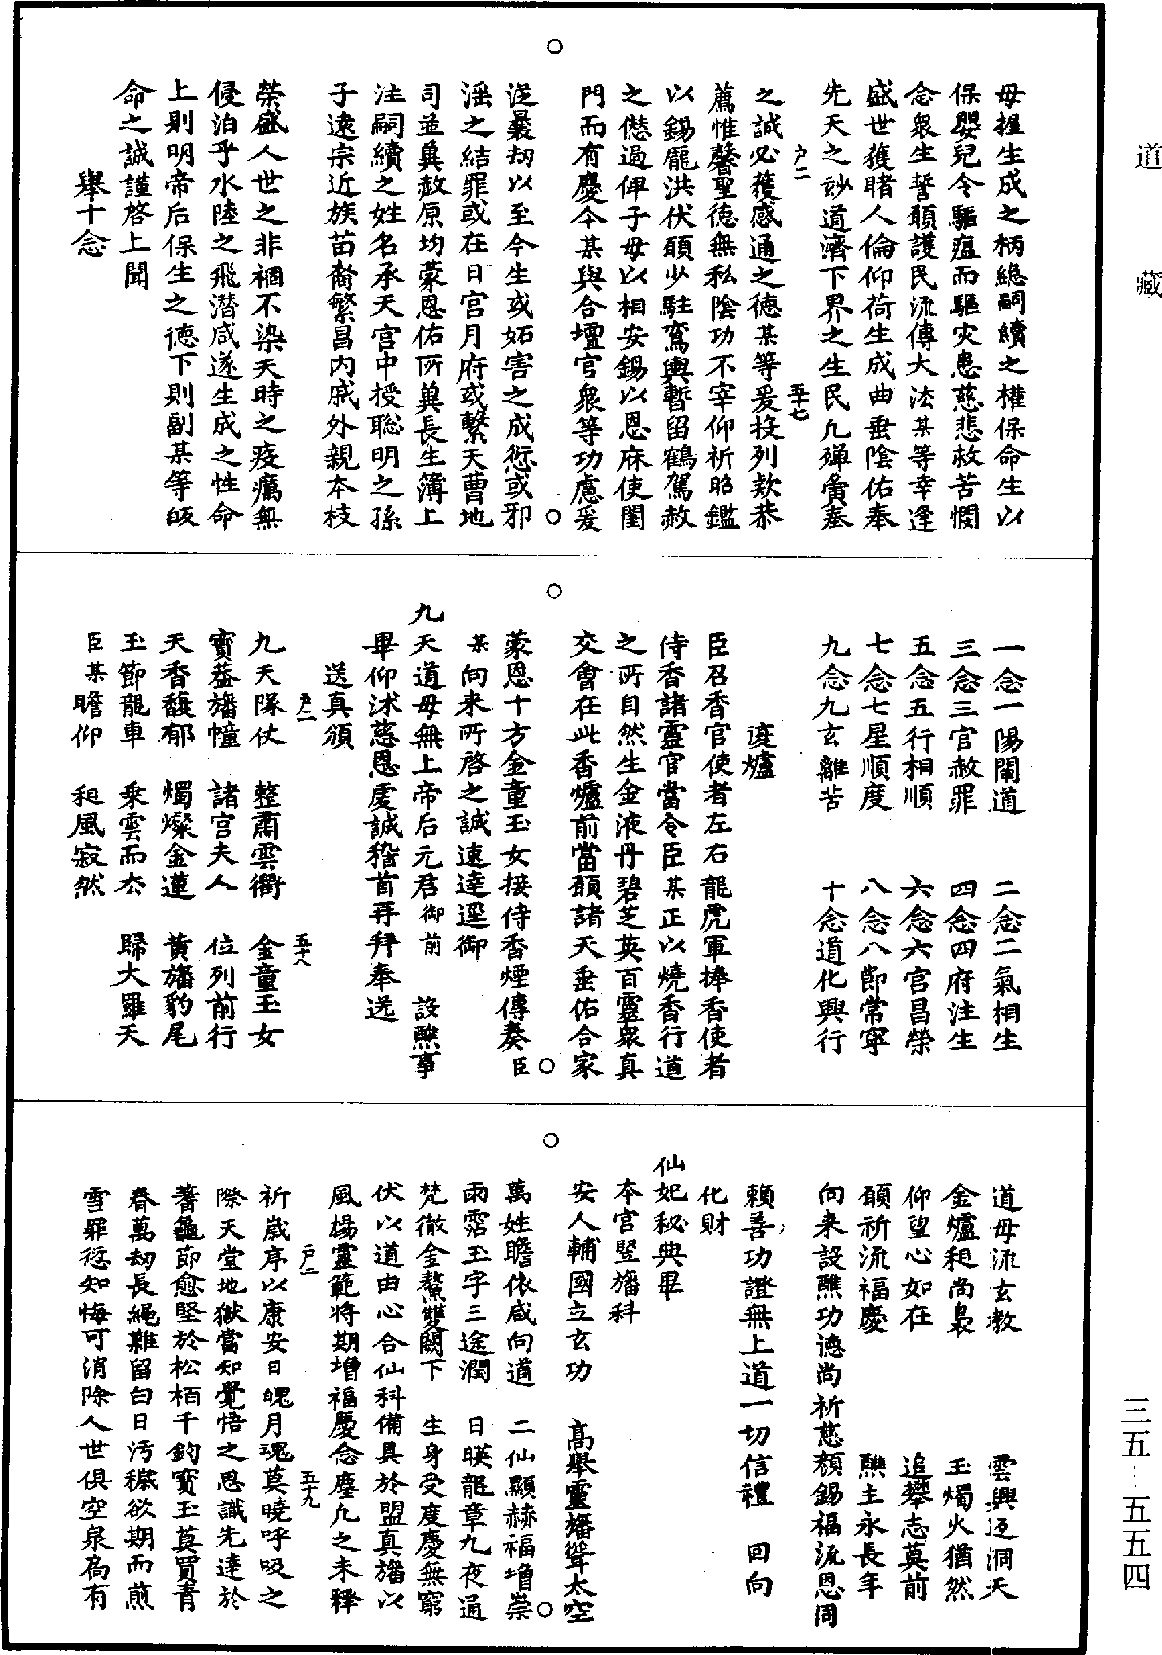 道藏
母握生成之柄總嗣續之權保命生以
保嬰兒令驅瘟而驅灾患慈悲救苦憫
念衆生誓願護民流傳大法某等幸逢
盛世獲睹人倫仰荷生成曲垂陰佑奉
先天之妙道濟下界之生民凡殫賷奉
之誠必獲感通之德某等爰投列款恭
薦惟馨聖德無私陰功不宰仰祈昭鑑
以錫龎洪伏願少駐鸞輿暫留鶴駕赦
之愆過俾子母以相安錫以恩庥使閨
門而有慶今某與合壇官衆等功慮爰
從曩劫以至今生或妬害之成愆或邪
滛之結罪或在日宮月府或繫天曹地
司並冀赦原均蒙恩佑所冀長生簿上
注嗣續之姓名承天宮中授聡明之孫
子逺宗近族苗裔繁昌内戚外親本枝
榮盛人世之非禍不染天時之疫癘無
侵泊乎水陸之飛潛咸遂生成之性命
上則明帝后保生之德下則副某等皈
命之誠謹啓上聞
舉十念
户二
五十七
一念一陽闡道 二念二氣相生
三念三官赦罪 四念四府注生
五念五行相順 六念六宮昌榮
七念七星順度 八念八節常寧
九念九玄離苦 十念道化興行
復爐
臣召香官使者左右龍虎軍捧香使者
侍香諸靈官當令臣某正以燒香行道
之所自然生金液丹碧芝英百靈衆真
交會在此香爐前當願諸天垂佑合家
蒙恩十方金童玉女接侍香煙傳奏臣
某向來所啓之誠速達逕御
九天道母無上帝后元君御前 設醮事
畢仰沭慈恩虔誠稽首再拜奉送
送真頌
户二
五十八
九天隊仗 整肅雲衢 金童玉女
寳葢旛幢 諸宫夫人 位列前行
天香馥郁 燭燦金蓮 黄旛豹尾
玉節龍車 乘雲而去 歸大羅天
臣某瞻仰 祖風寂然
道母流玄教 雲輿返洞天
金爐秬尚裊 玉燭火猶然
仰望心如在 追攀志莫前
願祈流福慶 醮主永長年
向来設醮功德尚祈慈顔錫福流恩同
賴善功證無上道一切信禮 回向
化財
仙妃秘典畢
本宫竪旛科
安人輔國立玄功 髙舉靈旛聳太空
萬姓瞻依咸向道 二仙顯赫福增崇
雨霑玉字三途潤 日暎龍章九夜通
梵徹金鰲雙闕下 生身受度慶無窮
伏以道由心合仙科備具於盟真旛以
風揚靈範将期增福慶念塵凡之未釋
祈歳序以康安日魄月魂莫曉呼吸之
際天堂地獄當知覺悟之恩識先達於
蓍龜節愈堅於松栢千鈞寳玉莫買青
春萬刼長繩難留白日汚穢欲期而煎
雪罪愆知悔可消除人世俱空泉扃有
户二
五十九
三五—五五四